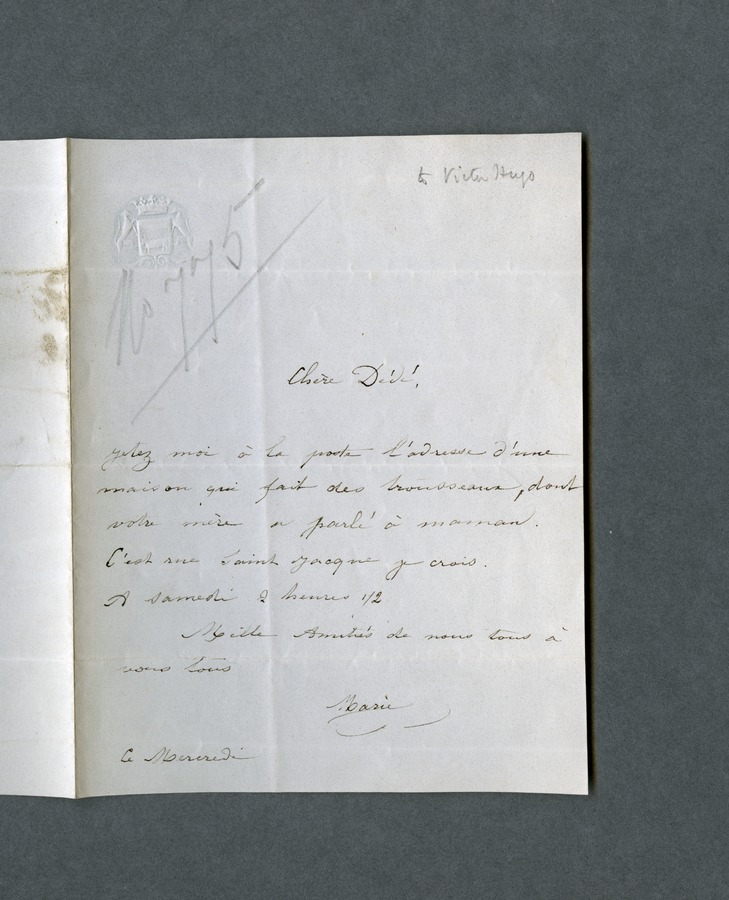 to Victor Hugo
No 775
Chère Dédé,
jetez moi à la poste l'adresse d'une
maison qui fait des trousseaux, dont
votre mère a parlé à maman.
C'est rue Saint Jacque je crois.
A samedi 2 heures 1/2
Mille Amitiés de nous tous à
vous tous
Marie
Ce Mercredi